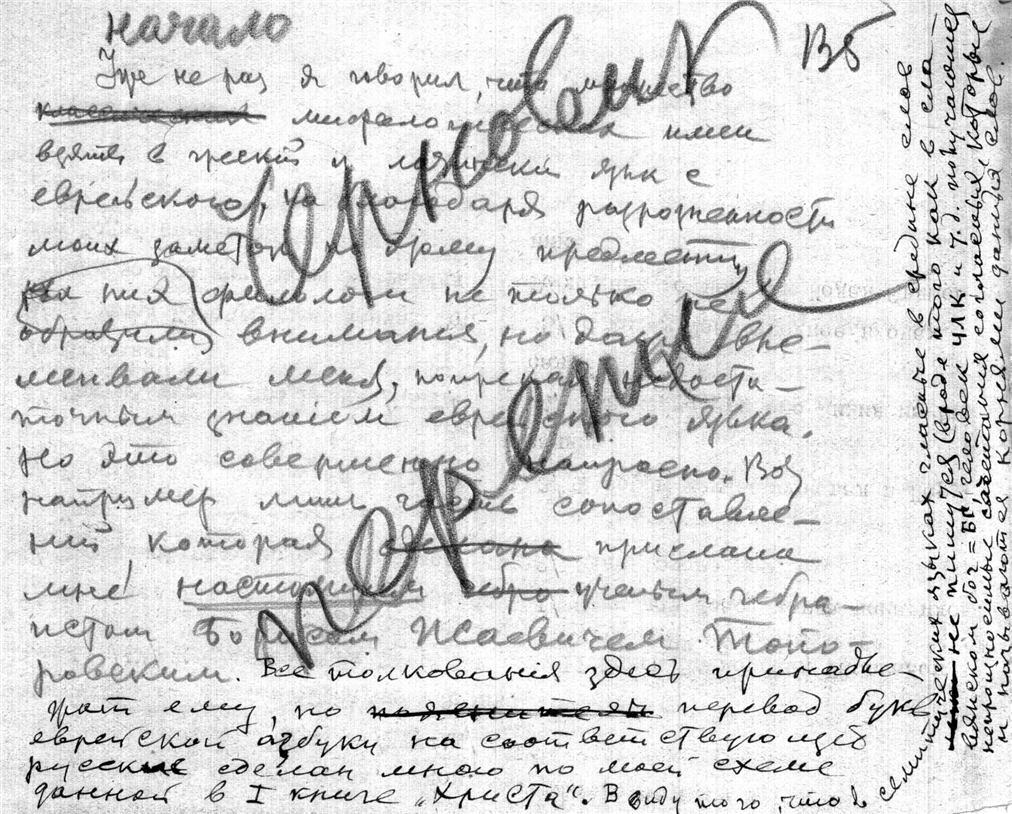 начало
В5
Черновик
Уже не раз я говорил, что множество
классических мифологических имен
взяты в греческий и латинский язык с
еврейского, но благодаря разрозненности
моих заметок по этому предмету
на них филологи не только не
обратили внимания, но даже вы-
меивали меня, попрекая недоста-
точным знанием еврейского языка.
Но это совершенно напрасно. Вот
например лишь часть сопоставле-
ний которая сделана прислана
мне настоящим ученым гебра-
истом Борисом Исаевичем Топо-
ровским. Все толкования здесь принадле-
жат ему, но перевод букв
еврейской азбуки на соответствующих
русские сделан мною по моей схеме
данной в I книге „Христа“. В виду того, что в
семитических языках гласные в средине слов
не пишутся (вроде того как в сла
вянском бог = БГ, человек ЧЛК и т.д. получаются
непроизносимые сочетания согласных которые
и называются корнями данных слов.